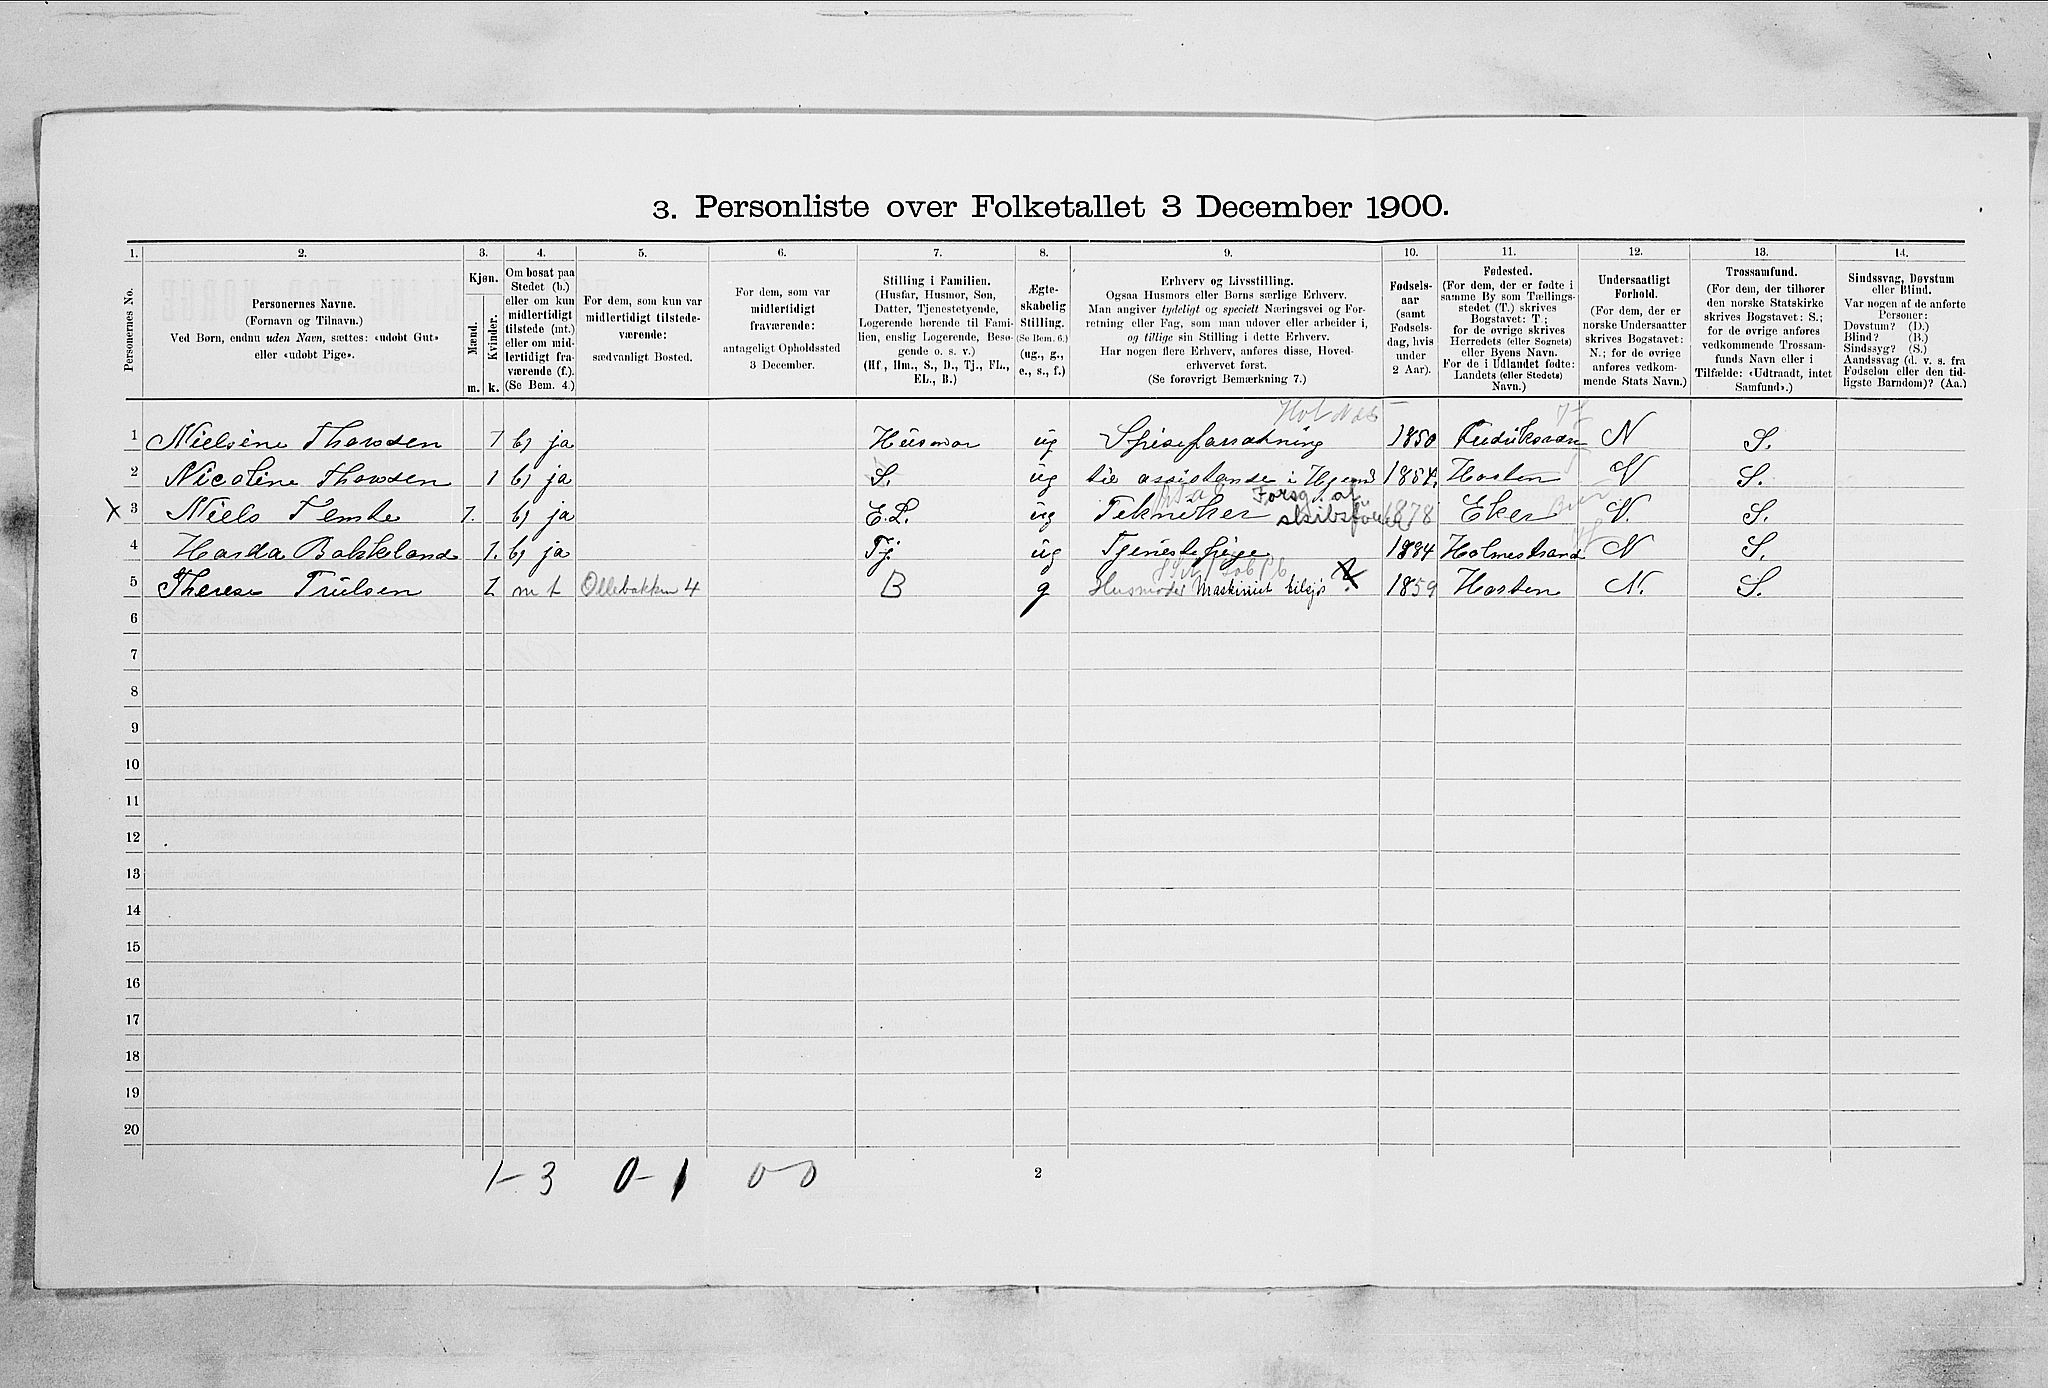 3. Personliste over Folketallet 3 December 1900.
1. 2. 3. 4. 5. 6. 7. 8. 9. 10. 11. 12. 13. 14.
Personernes No.
Personernes Navne.
(Fornavn og Tilnavn.)
Ved Børn, endnu uden Navn, sættes: «udøbt Gut»
eller «udøbt Pige».
Kjøn.
Mænd.
Kvinder.
m. k.
Om bosat paa
Stedet (b.)
eller om kun
midlertidigt
tilstede (mt.)
eller om mid-
lertidigt fra-
værende (f.).
(Se Bem. 4.)
For dem, som kun var
midlertidigt tilstede-
værende:
sædvanligt Bosted.
For dem, som var
midlertidigt
fraværende:
antageligt Opholdssted
3 December.
Stilling i Familien.
(Husfar, Husmor, Søn,
Datter, Tjenestetyende,
Logerende hørende til Fami-
lien, enslig Logerende, Besø-
gende o. s. v.)
(Hf., Hm., S., D., Tj., FL.,
EL., B.)
Ægte-
skabelig
Stilling.
(Se Bem. 6.)
(ug., g.,
e., s., f.)
Erhverv og Livsstilling.
Ogsaa Husmors eller Børns særlige Erhverv.
Man angiver tydeligt og specielt Næringsvei og For-
retning eller Fag, som man udøver eller arbeider i,
og tillige sin Stilling i dette Erhverv.
Har nogen flere Erhverv, anføres disse, Hoved-
erhvervet først.
(Se forøvrigt Bemærkning 7.)
Fødsels-
aar
(samt
Fødsels-
dag, hvis
under
2 Aar).
Fødested.
(For dem, der er fødte i
samme By som Tællings-
stedet (T.) skrives
Bogstavet: T;
for de øvrige skrives
Herredets (eller Sognets)
eller Byens Navn.
For de i Udlandet fødte:
Landets (eller Stedets)
Navn.)
Undersaatligt
Forhold.
(For dem, der er
norske Undersaatter
skrives Bogstavet:
N.; for de øvrige
anføres vedkom-
mende Stats Navn.)
Trossamfund.
(For dem, der tilhører
den norske Statskirke
skrives Bogstavet: S.;
for de øvrige anføres
vedkommende Trossam-
funds Navn eller i
Tilfælde: «Udtraadt, intet
Samfund».)
Sindssvag, Døvstum
eller Blind.
Var nogen af de anførte
Personer:
Døvstum? (D.)
Blind? (B.)
Sindssyg? (S.)
Aandssvag (d. v. s. fra
Fødselen eller den tid-
ligste Barndom)? (Aa.)
1 Nielsine Thowsen 1 b, ja Husmor ug Spiseforretning 1850 N S.
2 Nicoline Thowsen 1 b, ja S. ug 1854. Horten N S.
x 3 Niels 1. b, ja E.L. ug Tekniker Forsg. af skibsfører 1878 Eker N. S.
4 Harda Bakkeland 1. b, ja Tj. ug Tjenestepige 1884 Holmestrand N S.
5 Therese Trulsen 1 mt Ollebakken 4 B g Husmoder Maskinist tilsjøs 1859 Horten N. S.
6
7
8
9
10
11
12
13
14
15
16
17
18
19
20
1-3 0-1 0-0
2